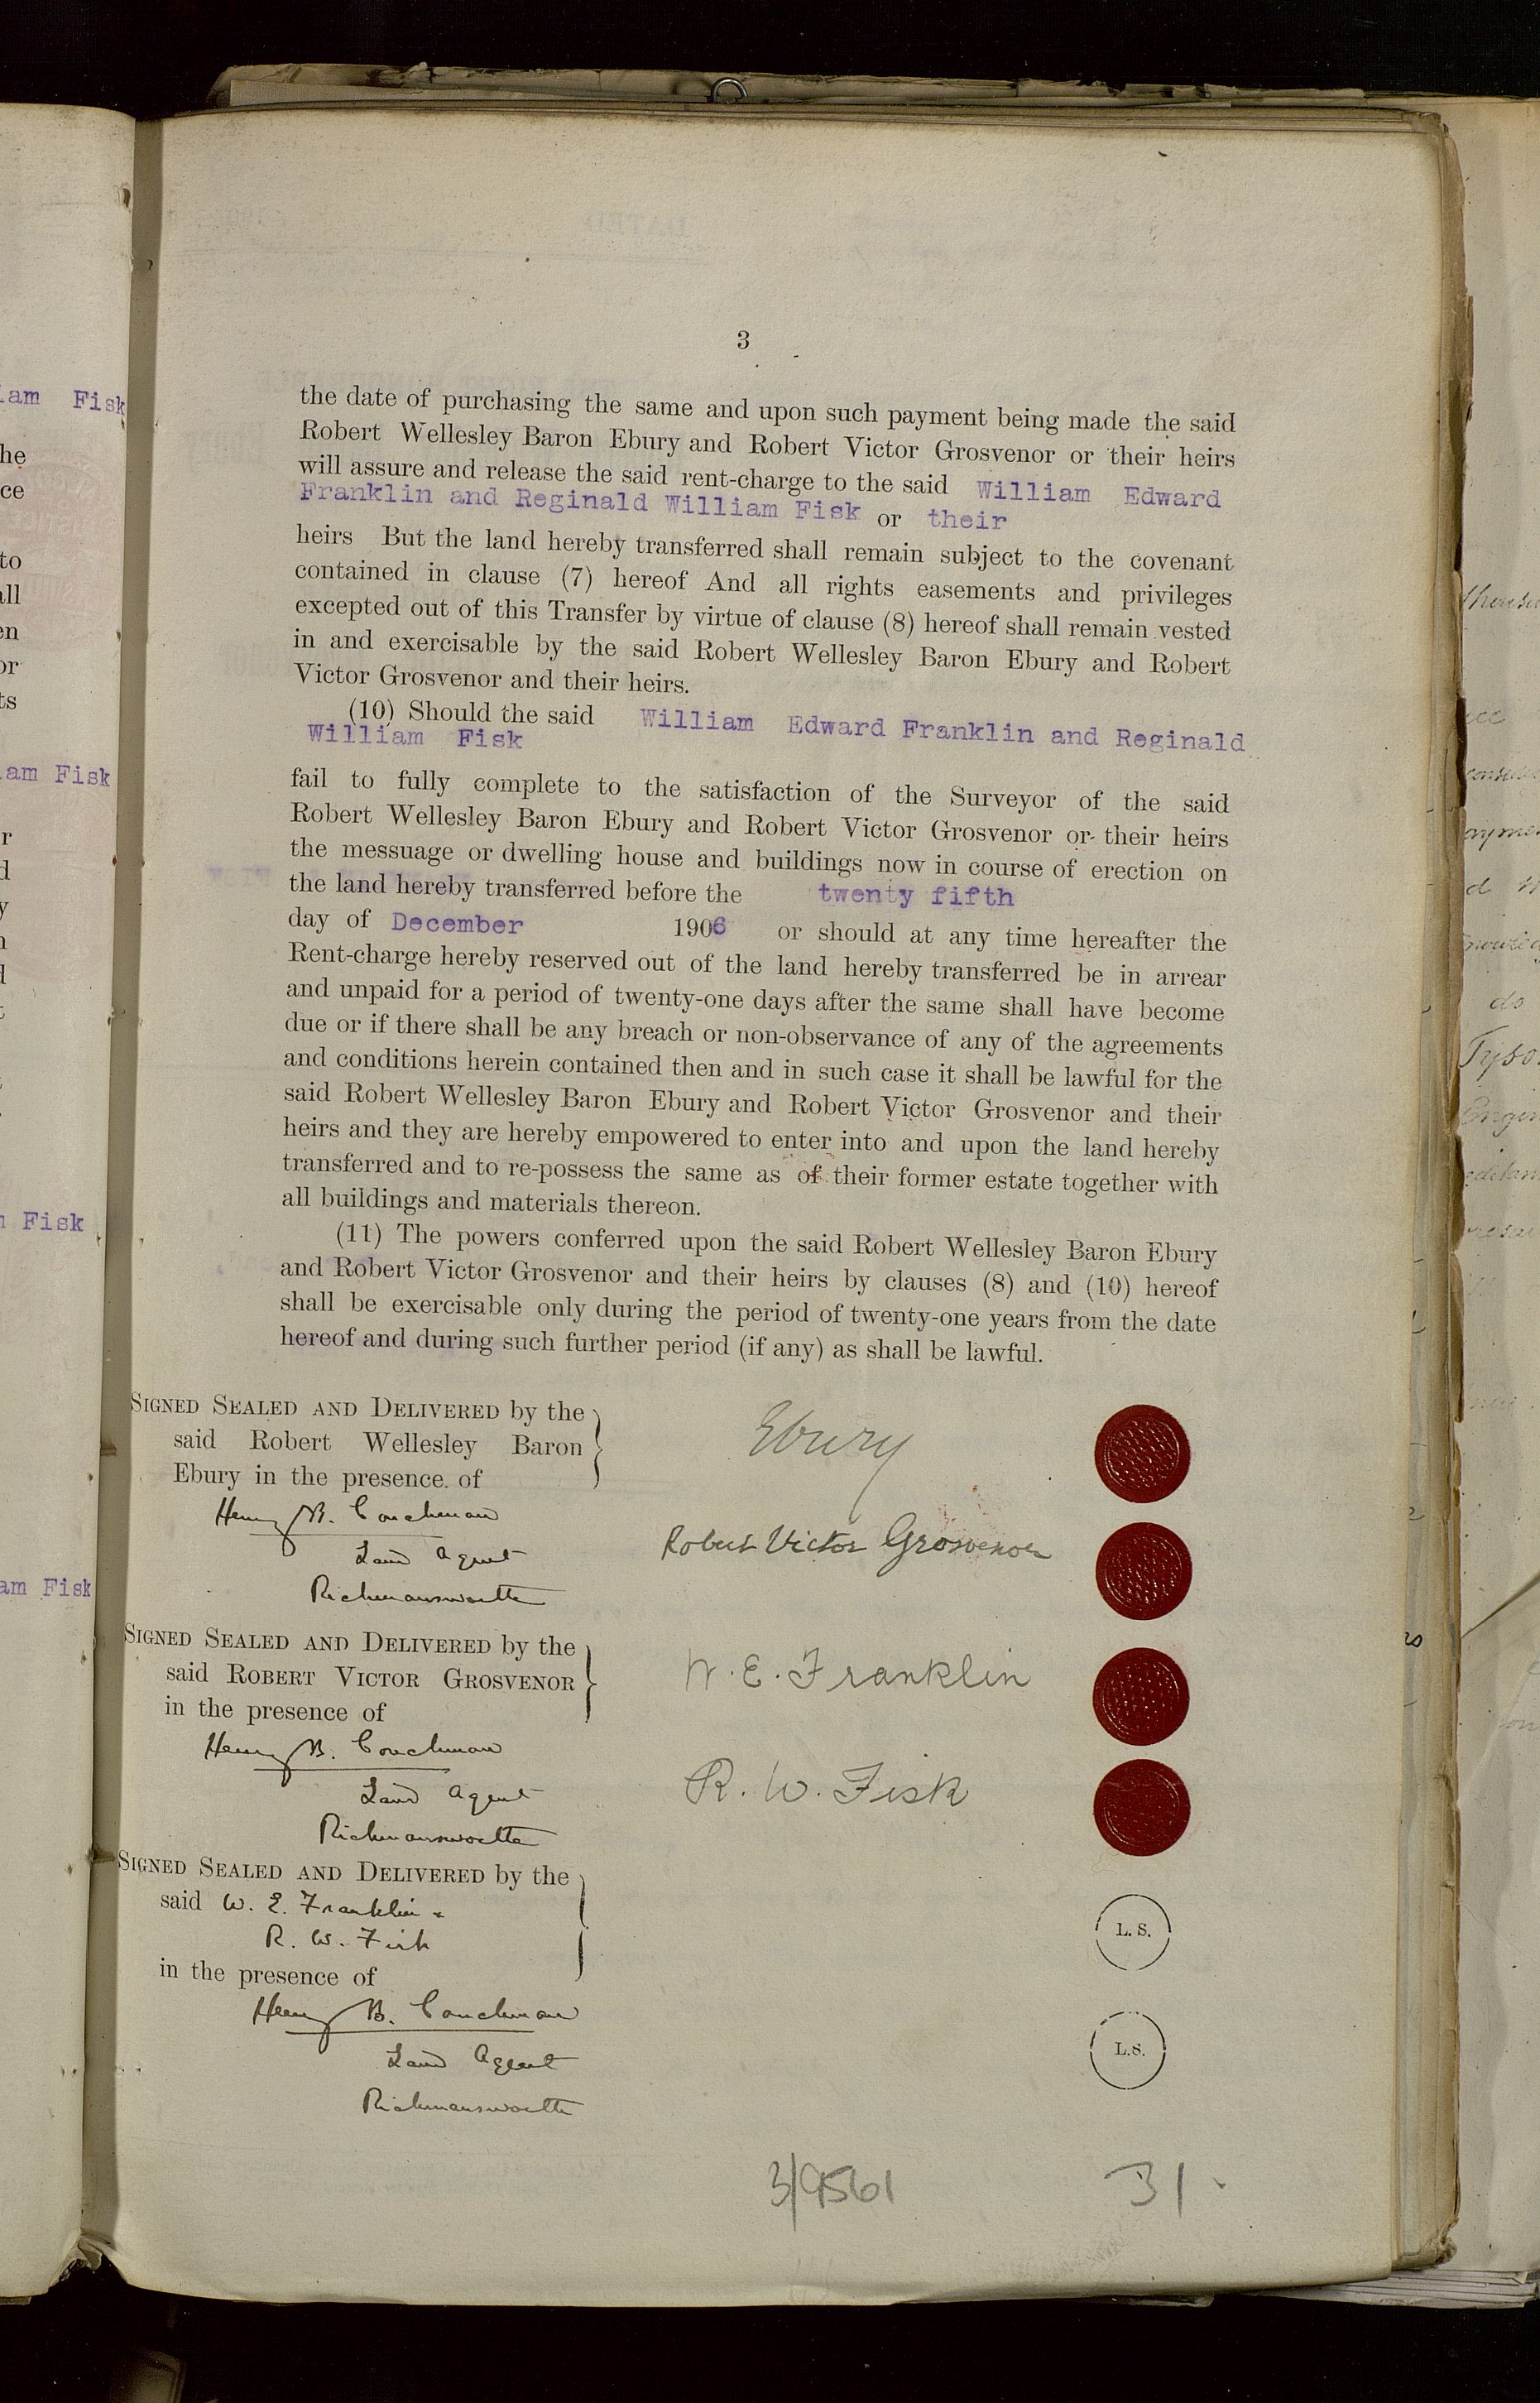 3
the date of purchasing the same and upon such payment being made the said
Robert Wellesley Baron Ebury and Robert Victor Grosvenor or their heirs
will assure and release the said rent-charge to the said William Edward
Franklin and Reginald William Fisk or their
heirs But the land hereby transferred shall remain subject to the covenant
contained in clause (7) hereof And all rights easements and privileges
excepted out of this Transfer by virtue of clause (8) hereof shall remain vested
in and exercisable by the said Robert Wellesley Baron Ebury and Robert
Victor Grosvenor and their heirs.
(10) Should the said William Edward Franklin and Reginald
William Fisk
fail to fully complete to the satisfaction of the Surveyor of the said
Robert Wellesley Baron Ebury and Robert Victor Grosvenor or their heirs
the messuage or dwelling house and buildings now in course of erection on
the land hereby transferred before the twenty fifth
day of December 1906 or should at any time hereafter the
Rent-charge hereby reserved out of the land hereby transferred be in arrear
and unpaid for a period of twenty-one days after the same shall have become
due or if there shall be any breach or non-observance of any of the agreements
and conditions herein contained then and in such case it shall be lawful for the
said Robert Wellesley Baron Ebury and Robert Victor Grosvenor and their
heirs and they are hereby empowered to enter into and upon the land hereby
transferred and to re-possess the same as of their former estate together with
all buildings and materials thereon.
(11) The powers conferred upon the said Robert Wellesley Baron Ebury
and Robert Victor Grosvenor and their heirs by clauses (8) and (10) hereof
shall be exercisable only during the period of twenty-one years from the date
hereof and during such further period (if any) as shall be lawful.
SIGNED SEALED AND DELIVERED by the
said Robert Wellesley Baron
Ebury in the presence of
Henry B. Couchman
Land Agent
Rickmansworth
Ebury
Robert Victor Grosvenor
SIGNED SEALED AND DELIVERED by the
said ROBERT VICTOR GROSVENOR
in the presence of
Henry B. Couchman
Land Agent
Rickmansworth
W. E. Franklin
R. W. Fisk
SIGNED SEALED AND DELIVERED by the
said W. E. Franklin &
R. W. Fisk
in the presence of
Henry B. Couchman
Land Agent
Rickmansworth
L. S.
L.S.
3/9561
31